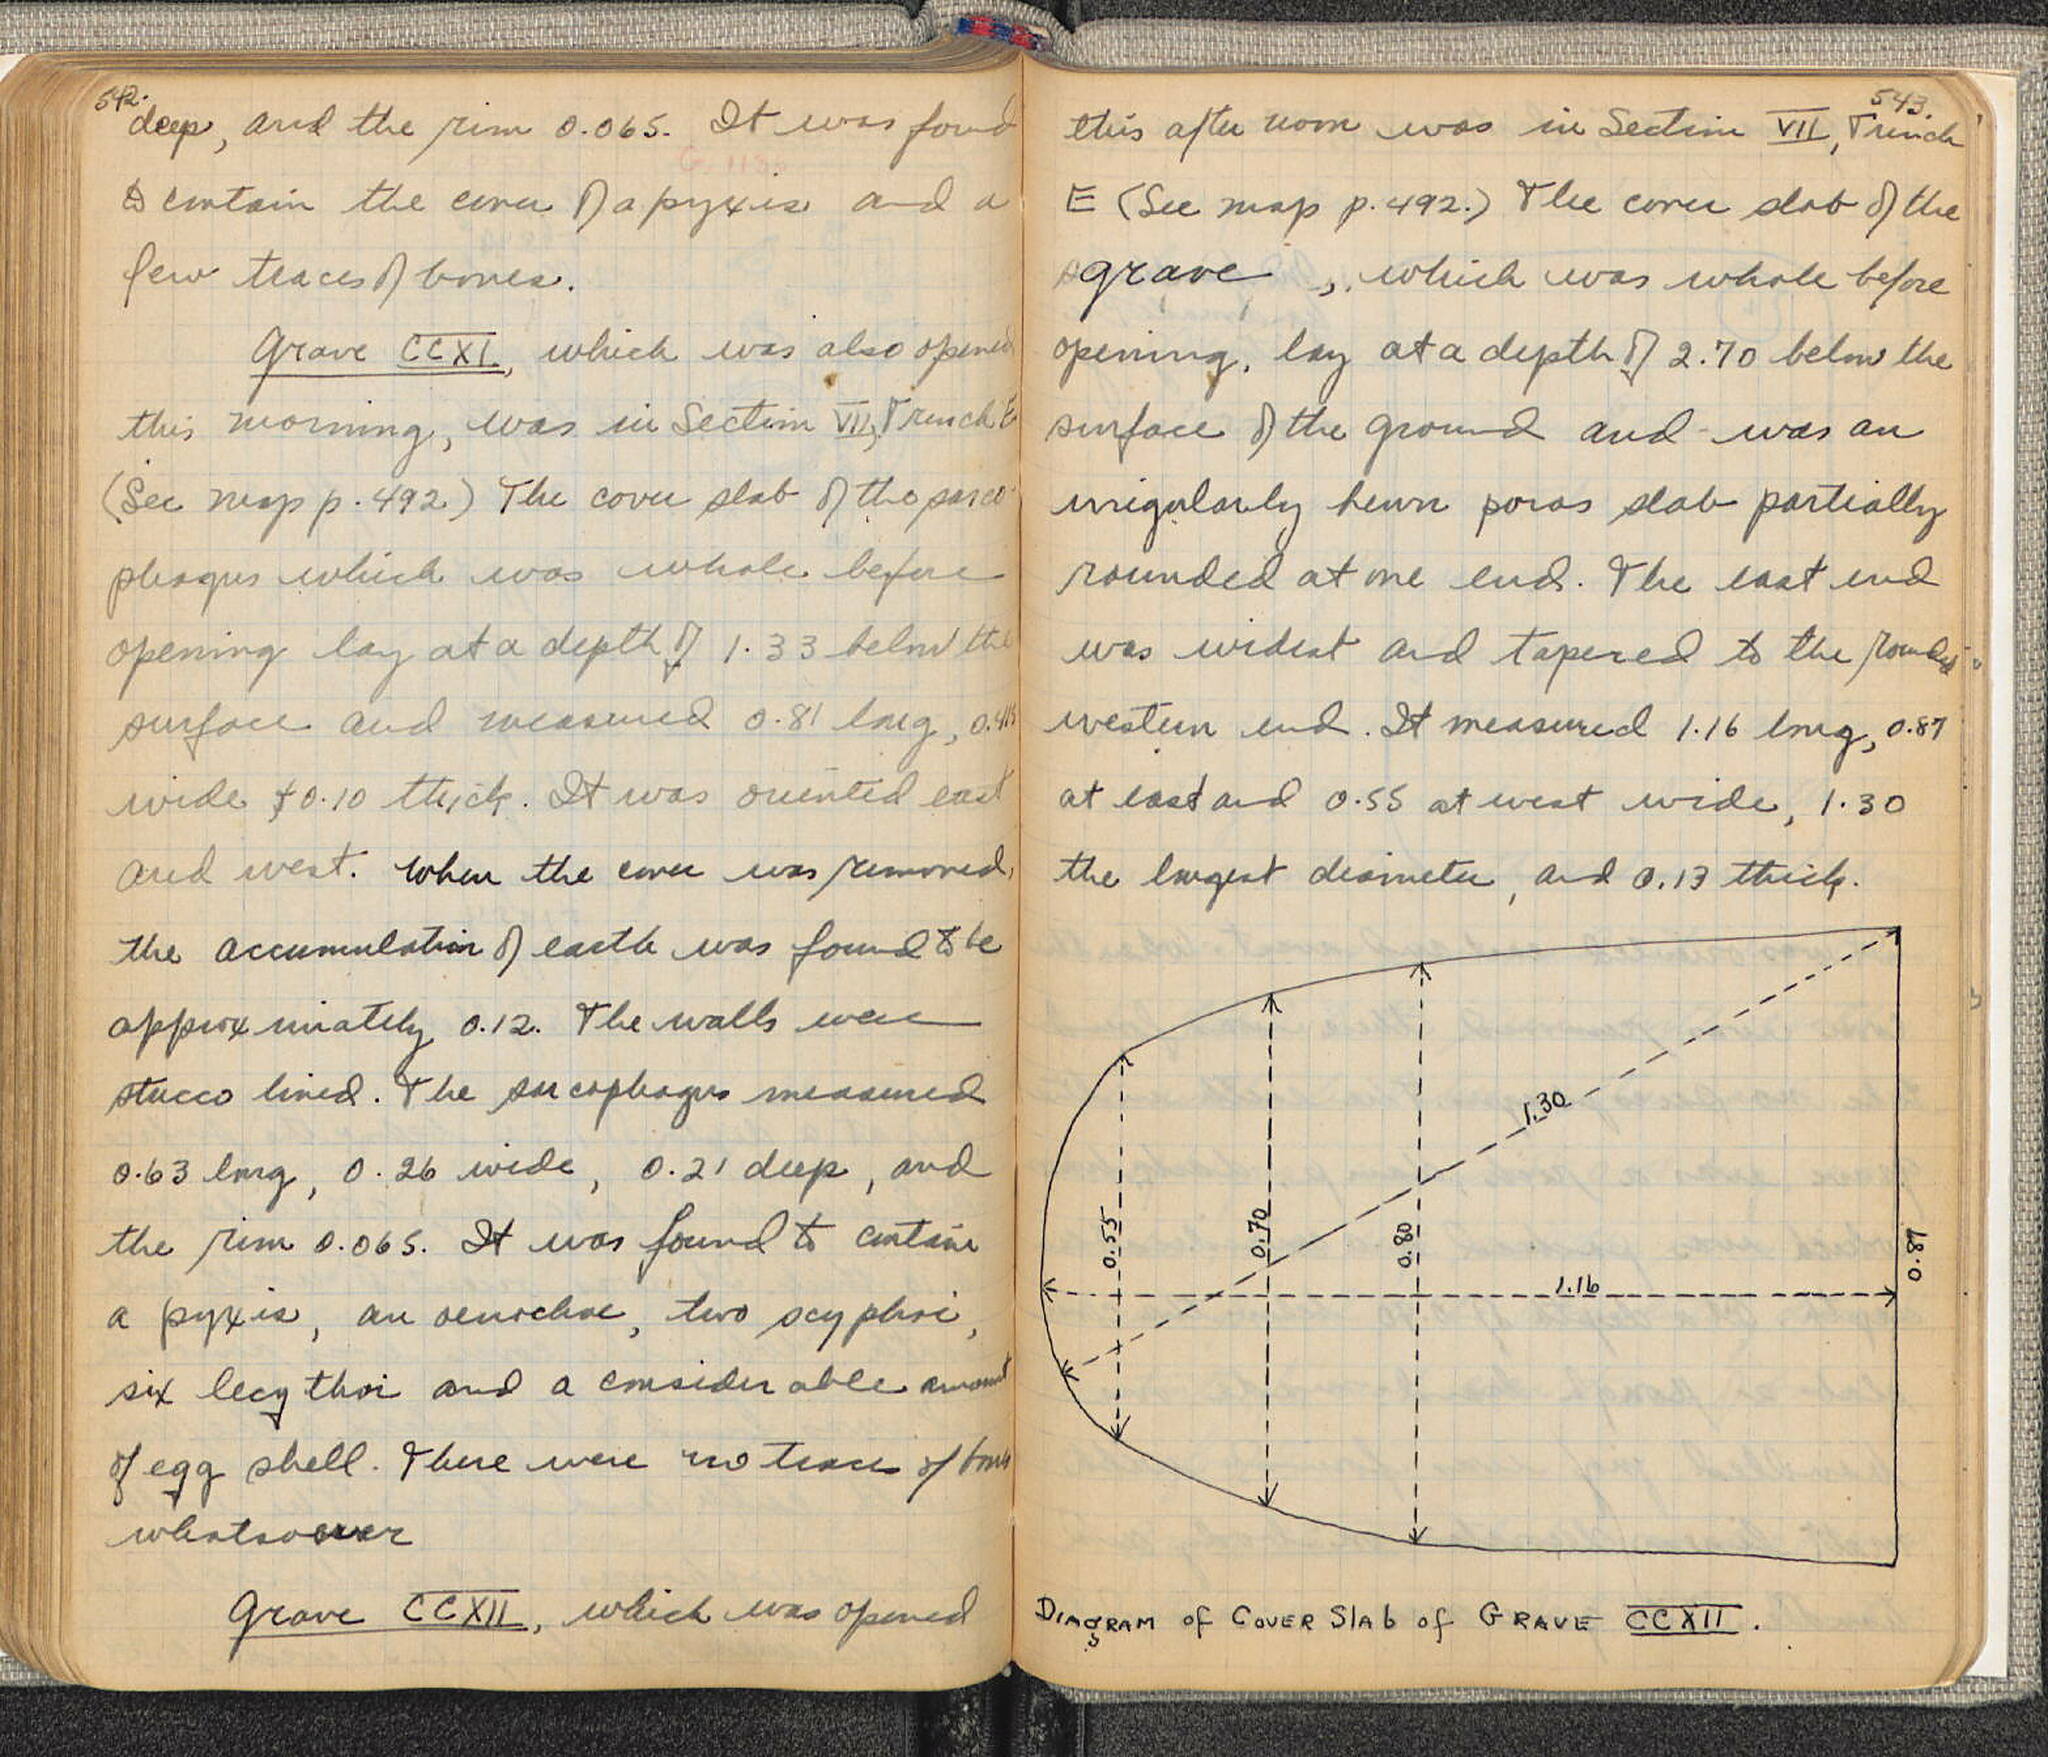 542.
deep, and the rim 0.065. It was found
to contain the cover of a pyxis and a
few traces of bones.
Grave CCXI, which was also opened
this morning, was in Section VII, Trench E
(See map p. 492.) The cover slab of the sarco-
phagus which was whole before
opening lay at a depth of 1.33 below the
surface and measured 0.81 long,
wide & 0.10 thick. It was oriented east
and west. When the cover was removed,
the accumulation of earth was found to be
approximately 0.12. The walls were
stucco lined. The sarcophagus measured
0.63 long, 0.26 wide, 0.21 deep, and
the rim 0.065. It was found to contain
a pyxis, an oenochoe, two scyphoi,
six lecythoi and a considerable amount
of egg shell. There were no traces of bones
whatsoever
Grave CCXII, which was opened
543.
this afternoon was in Section VII, Trench
E (See map p. 492.) The cover slab of the
grave, which was whole before
opening, lay at a depth of 2.70 below the
surface of the ground and was an
irregularly hewn poros slab partially
rounded at one end. The east end
was widest and tapered to the rounded
western end. It measured 1.16 long, 0.87
at east and 0.55 at west wide, 1.30
the largest diameter, and 0.13 thick.
1.30
0.55
0.70
0.80
1.16
0.87
Diagram of Cover Slab of Grave CCXII.